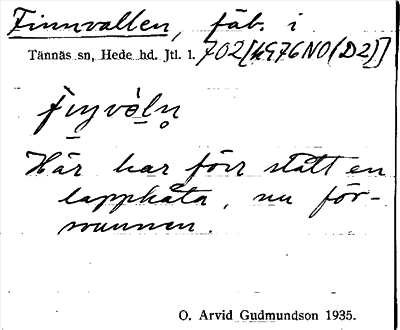 Finnvallen, fäb. i
Tännäs sn, Hede hd. Jtl. l. 702 [49G76NO(D2)]
Här har förr stått en
lappkåta, nu för-
svunnen.
O. Arvid Gudmundson 1935.